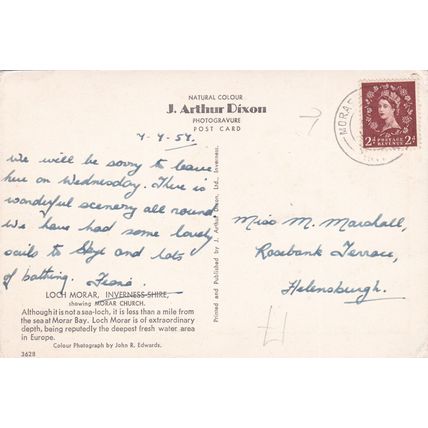 NATURAL COLOUR
J. Arthur Dixon
PHOTOGRAVURE
POST CARD
MORAR
2d POSTAGE REVENUE 2d
We will be sorry to leave
here on Wednesday. There is
wonderful scenery all round
We have had some lovely
sails to Skye and lots
of bathing.
LOCH MORAR, INVERNESS-SHIRE,
showing MORAR CHURCH.
Although it is not a sea-loch, it is less than a mile from
the sea at Morar Bay. Loch Morar is of extraordinary
depth, being reputedly the deepest fresh water area
in Europe.
Colour Photograph by John R. Edwards.
3628
Printed and Published by J. Arthur Dixon, Ltd., Inverness.
Miss M. Marshall,
Rosebank Terrace,
Helensburgh.